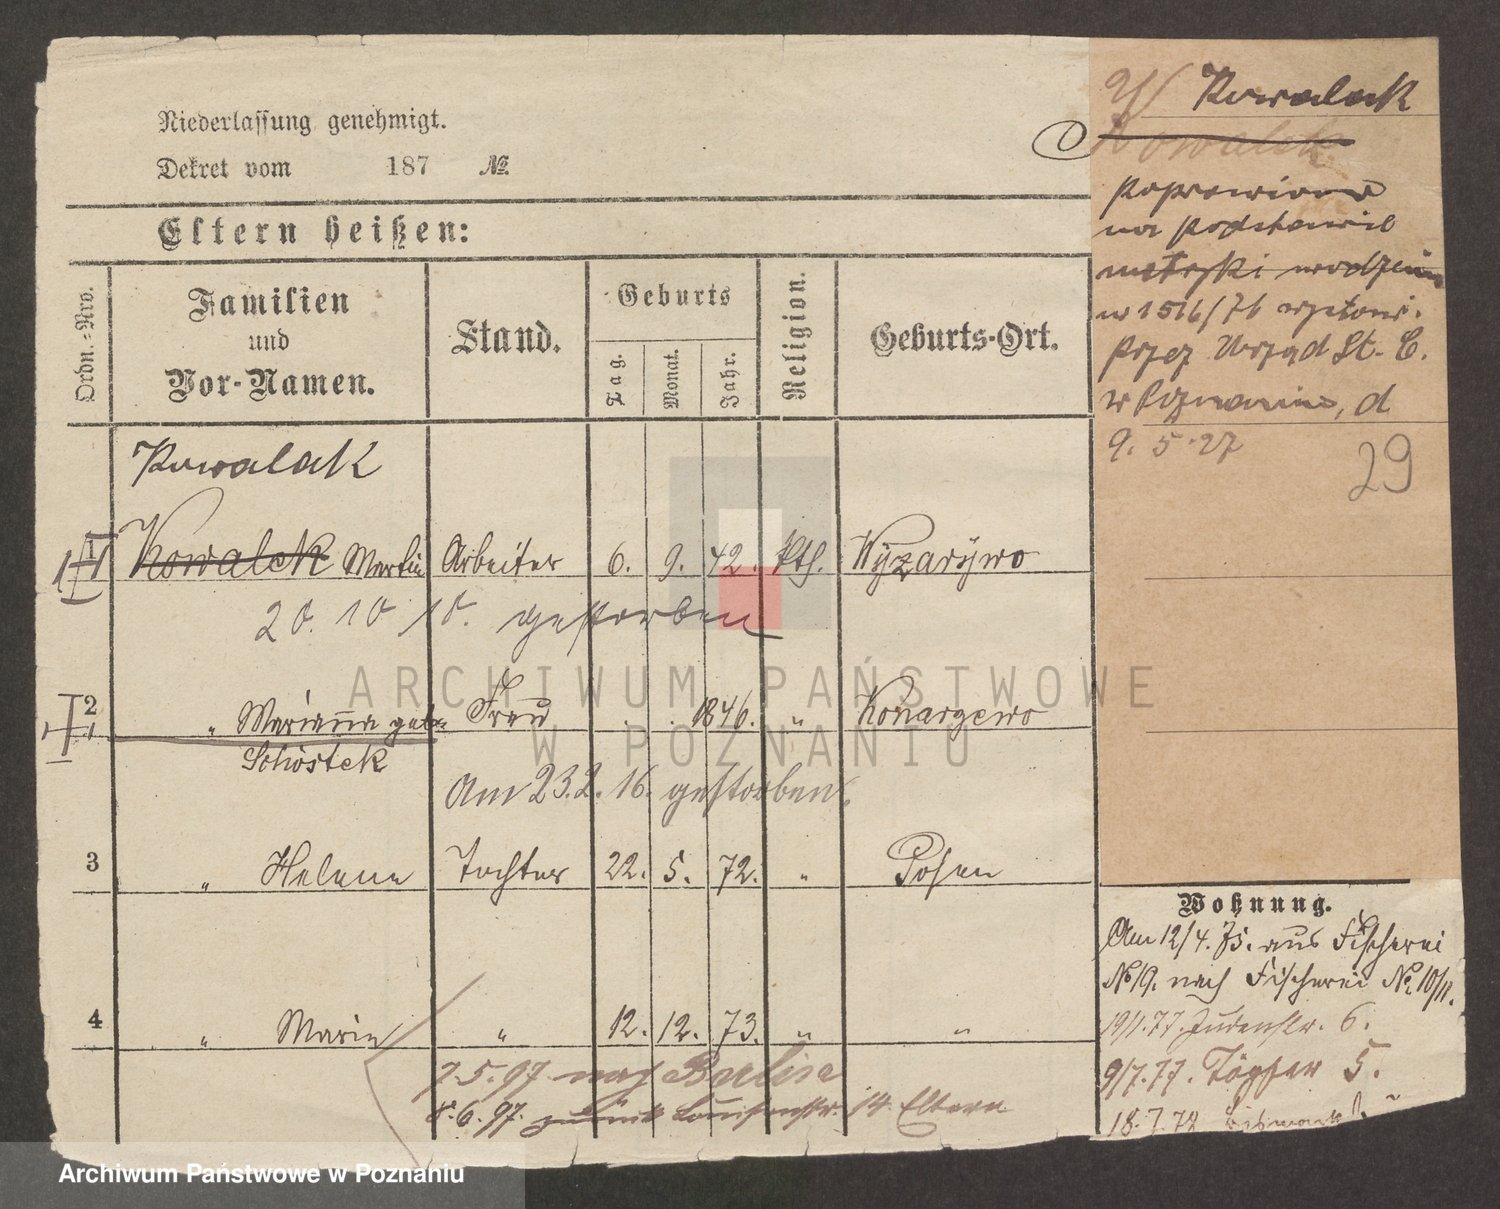 Niederlassung genehmigt.
Dekret vom 187 №
Eltern heißen:
Ordn.-Nro.
Familien
und
Vor-Namen.
Stand.
Geburts
Tag.
Monat.
Jahr.
Religion.
Geburts-Ort.
Kowalak
1 Kowalek Martin Arbeiter 6. 9. 42. kth. Wyzarywo
20. 10 10. gestorben
2 " Marianna geb. Frau 1846. " Konarzewo
Schostek
Am 23.2.16. gestorben.
3 " Helene Tochter 22. 5. 72. " Posen
4 " Marie " 12. 12. 73. " "
7.5.97 nach Berlin
8.6.97. zurück Louisenstr. 14 Eltern
Kowalak
Kowalek
poprawiono
na podstawie
metryki urodzenia
nr 1516/76 wystawi.
przez Urząd St. C.
w Poznaniu, d
9. 5. 27
29
Wohnung.
Am 12/4. 75. aus Fischerei
№ 19. nach Fischerei № 10/11.
19/1.77. Judenstr. 6.
9/7.77. Töpfer 5.
18.7.78 Bismarckstr.
ARCHIWUM PAŃSTWOWE
W POZNANIU
Archiwum Państwowe w Poznaniu